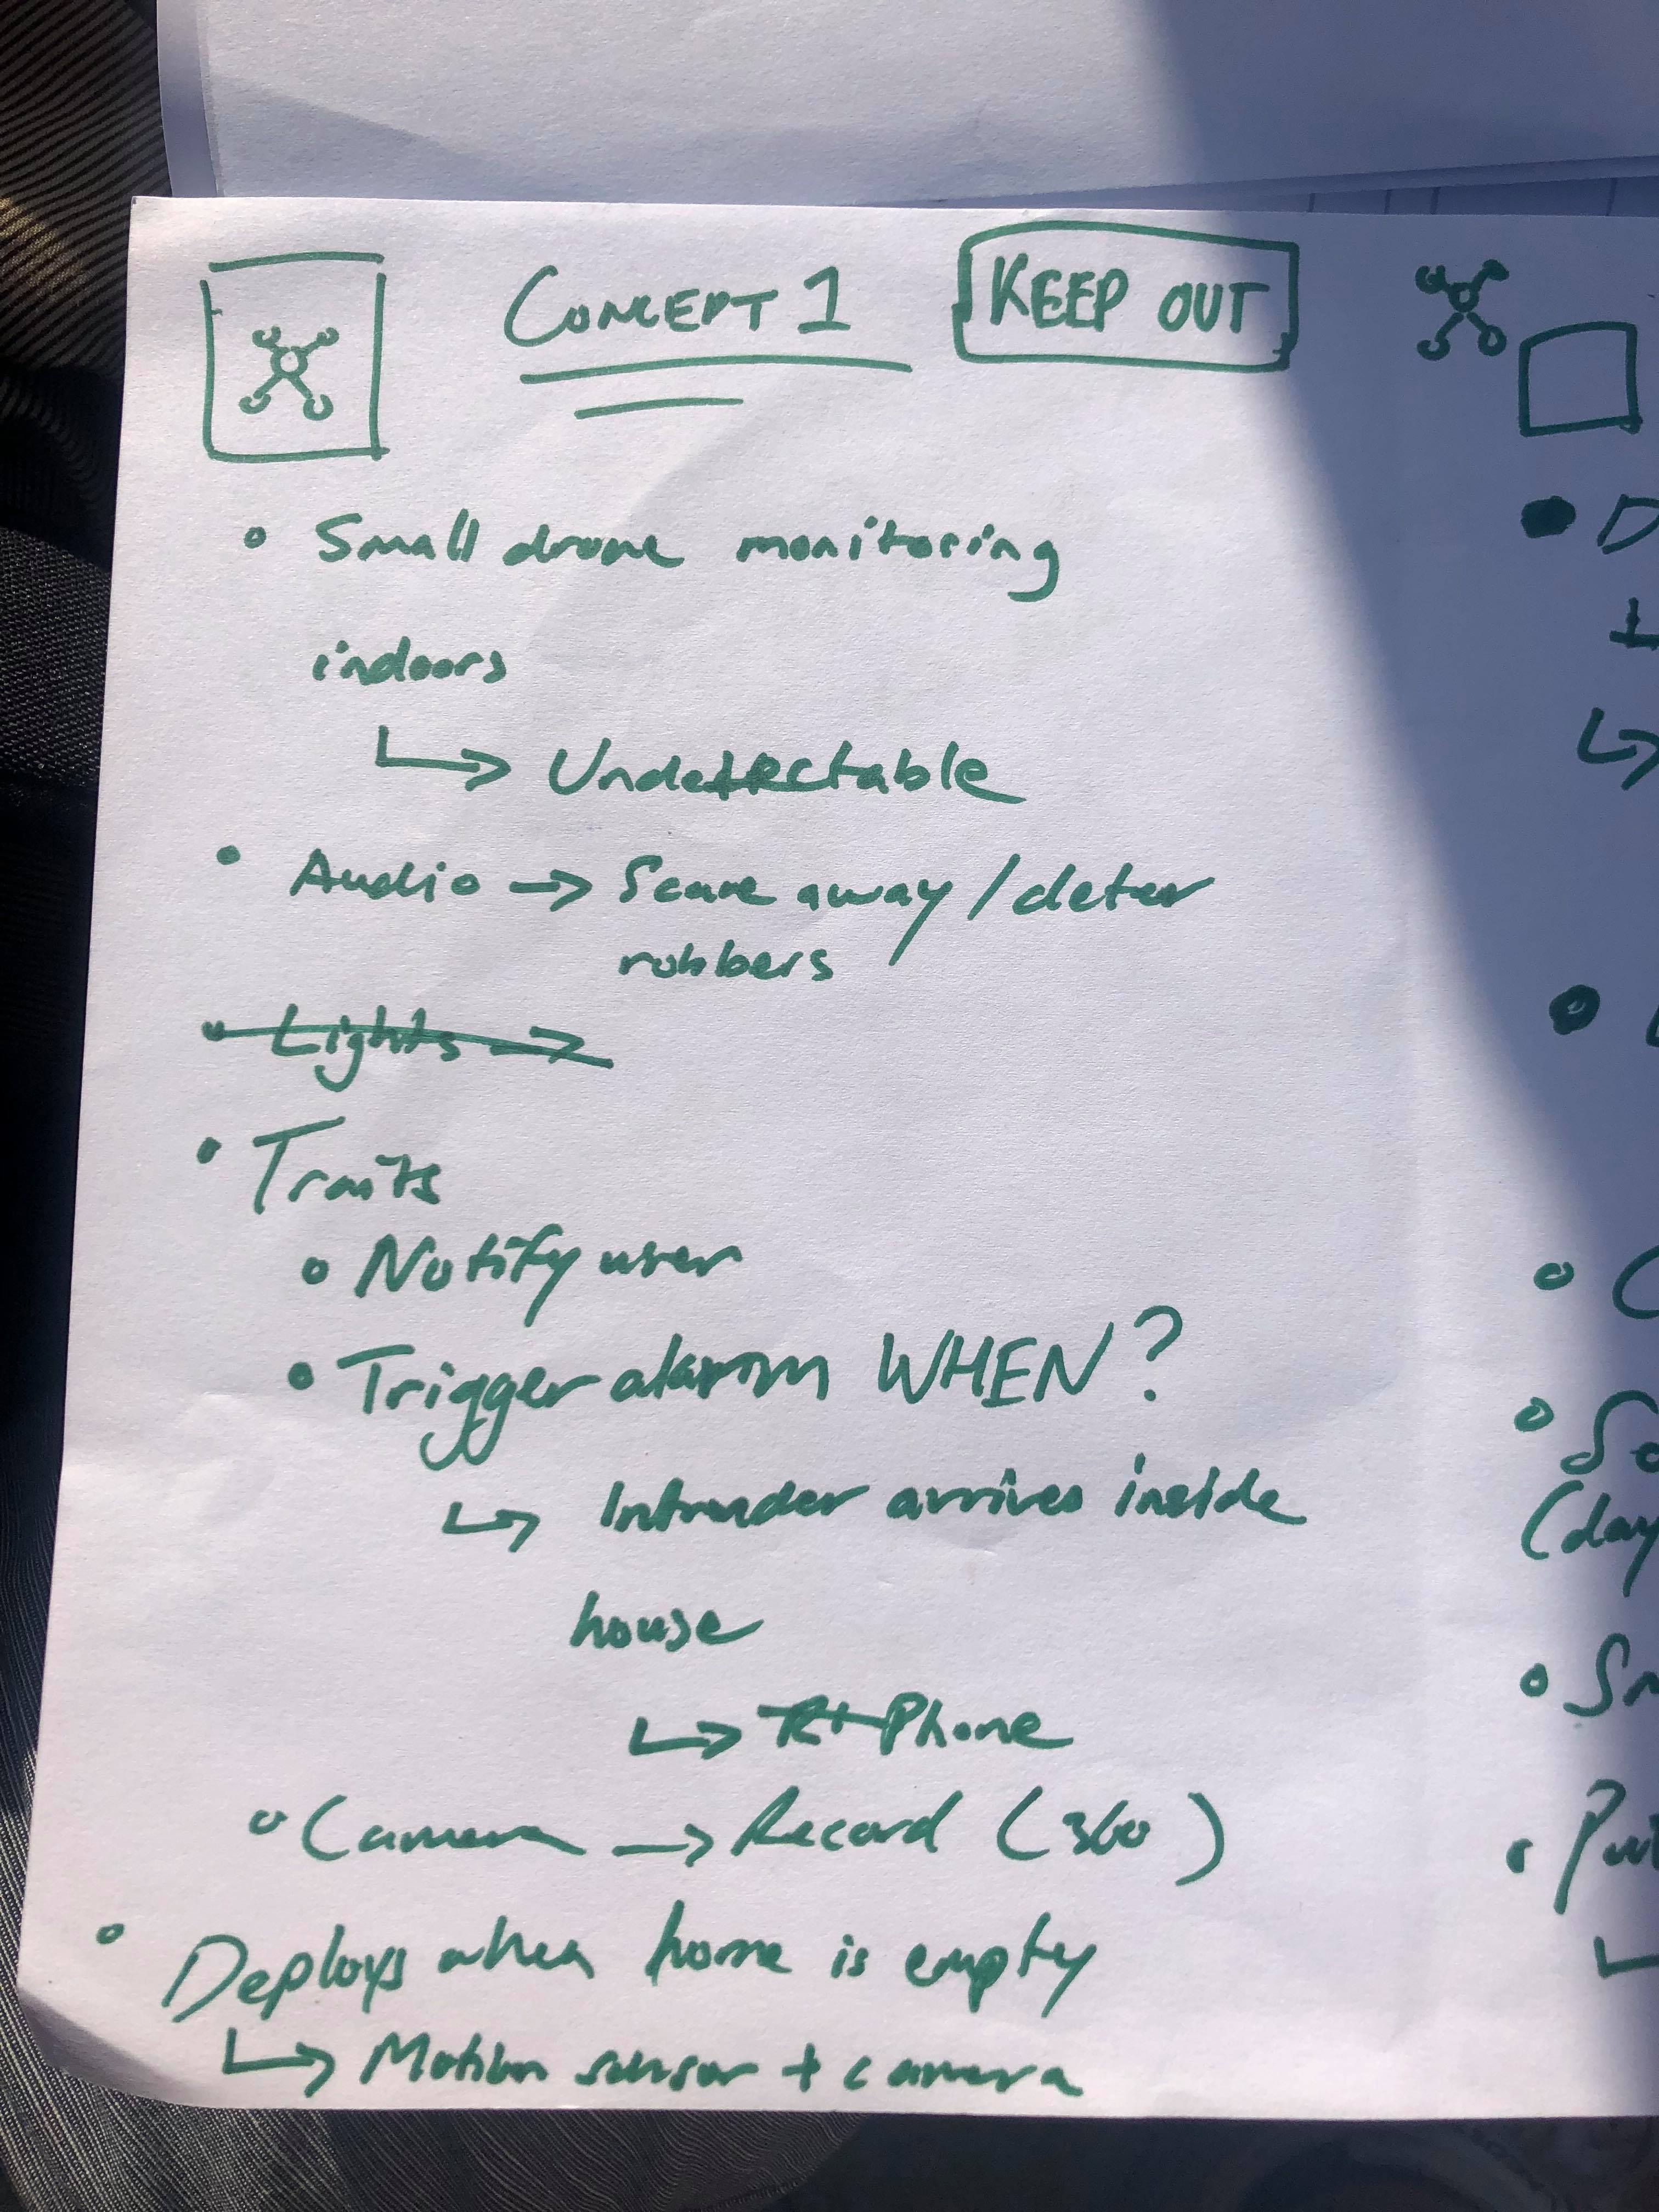 CONCEPT 1
KEEP OUT
Small drone monitoring
indoors
↳ Undetectable
Audio → Scare away / deter
robbers
Lights →
Traits
Notify user
Trigger alarm WHEN?
↳ Intruder arrives inside
house
↳ Phone
Camera → Record (360)
Deploys when home is empty
↳ Motion sensor + camera
(day